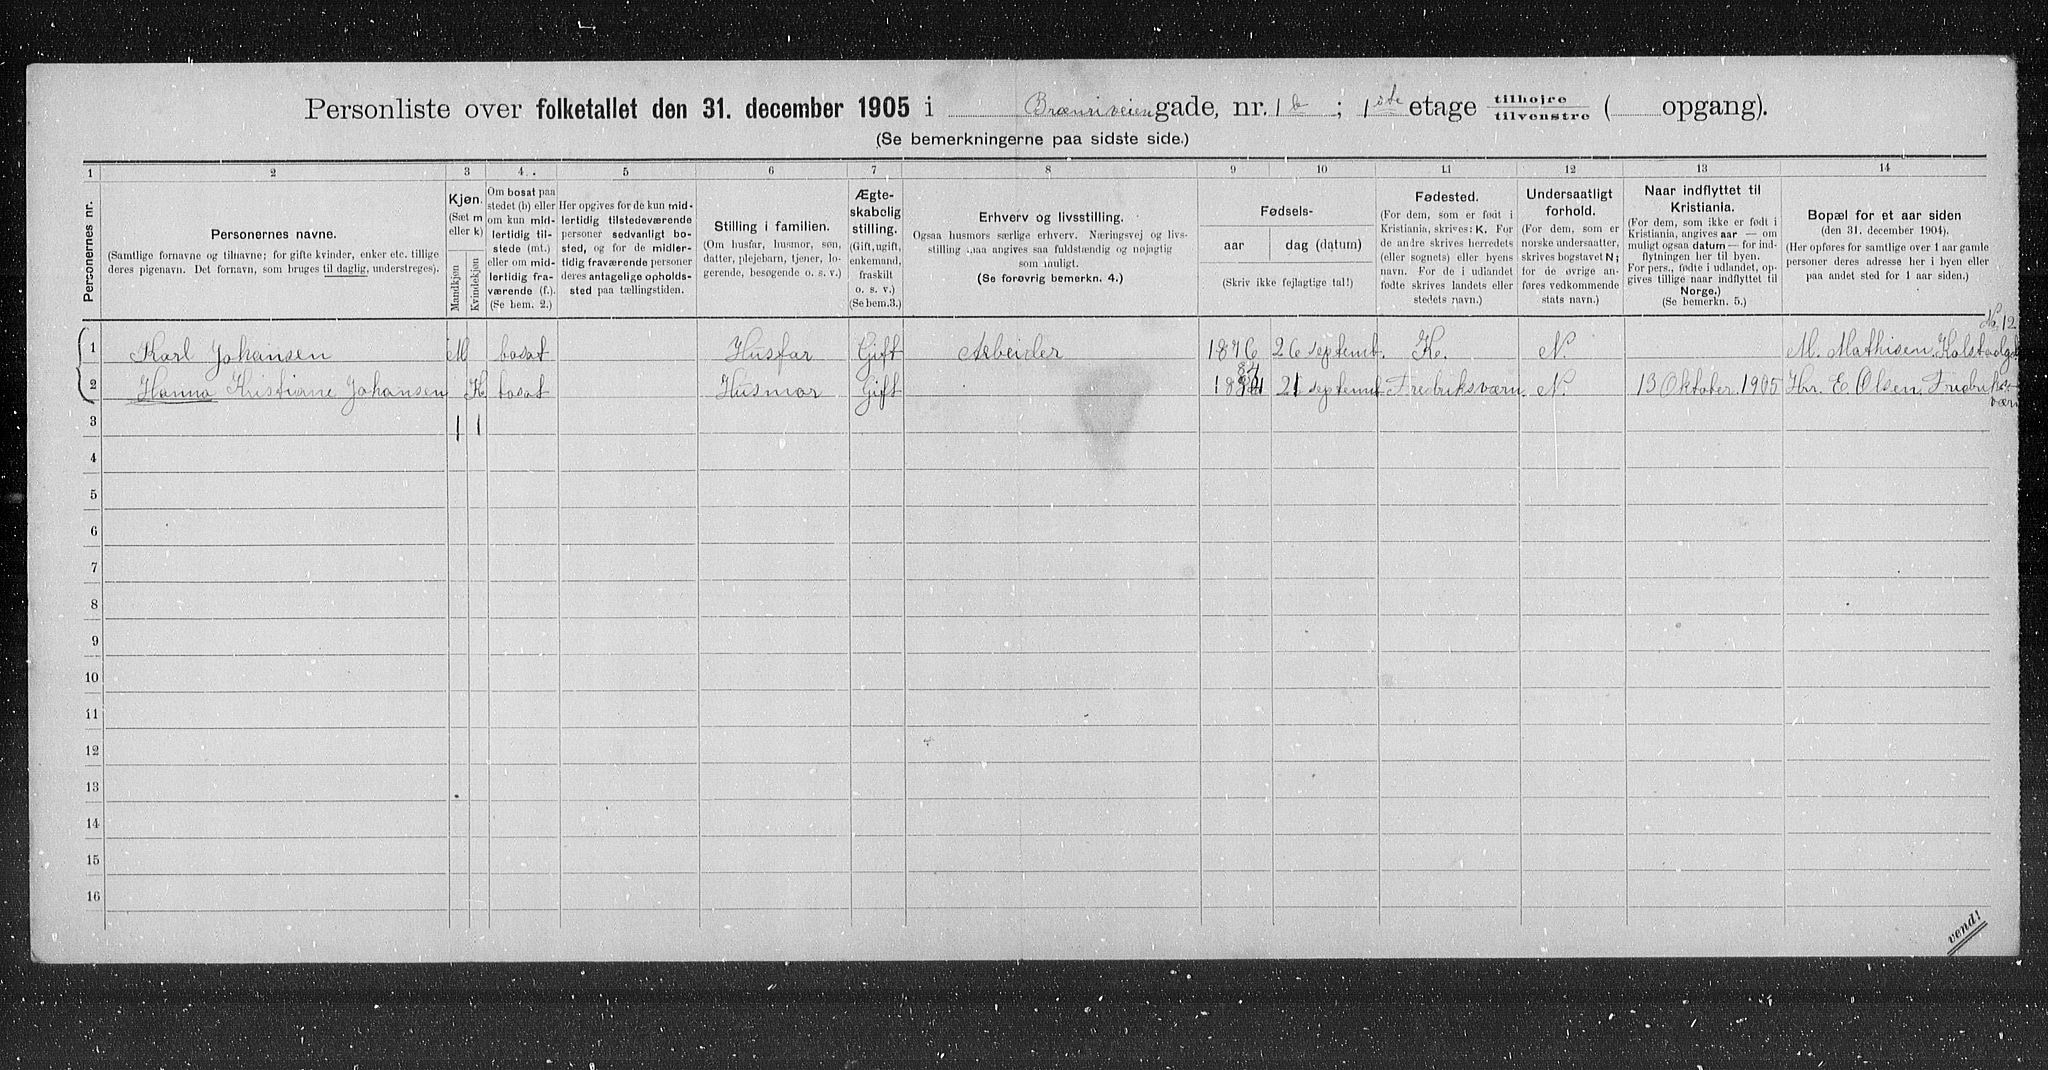 Personliste over folketallet den 31. december 1905 i Brænriveien gade, nr. 1 b ; 1ste etage tilhøjre tilvenstre ( opgang).
(Se bemerkningerne paa sidste side.)
1 2 3 4. 5 6 7 8 9 10 11 12 13 14
Personernes nr.
Personernes navne.
(Samtlige fornavne og tilnavne; for gifte kvinder, enker etc. tillige
deres pigenavn. Det fornavn, som bruges til daglig, understreges).
Kjøn.
(Sæt m
eller k)
Mandkjøn
Kvindekjøn
Om bosat paa
stedet (b) eller
om kun mid-
lertidig til-
stede (mt.)
eller om mid-
lertidig fra-
værende (f.).
(Se bem. 2.)
Her opgives for de kun mid-
lertidig tilstedeværende
personer sedvanligt bo-
sted, og for de midler-
tidig fraværende personer
deres antagelige opholds-
sted paa tællingstiden.
Stilling i familien.
(Om husfar, husmor, søn,
datter, plejebarn, tjener, lo-
gerende, besøgende o. s. v.)
Ægte-
skabelig
stilling.
(Gift, ugift,
enkemand,
fraskilt
o. s. v.)
(Se bem.3.)
Erhverv og livsstilling.
Ogsaa husmors særlige erhverv. Næringsvej og livs-
stilling maa angives saa fuldstændig og nøjagtig
som muligt.
(Se forøvrig bemerkn. 4.)
Fødsels-
aar dag (datum)
(Skriv ikke fejlagtige tal!)
Fødested.
(For dem, som er født i
Kristiania, skrives: K. For
de andre skrives herredets
(eller sognets) eller byens
navn. For de i udlandet
fødte skrives landets eller
stedets navn.)
Undersaatligt
forhold.
(For dem, som er
norske undersaatter,
skrives bogstavet N;
for de øvrige an-
føres vedkommende
stats navn.)
Naar indflyttet til
Kristiania.
(For dem, som ikke er født i
Kristiania, angives aar — om
muligt ogsaa datum — for ind-
flytningen her til byen.
For pers., fødte i udlandet, op-
gives tillige naar indflyttet til
Norge.)
(Se bemerkn. 5.)
Bopæl for et aar siden
(den 31. december 1904).
(Her opføres for samtlige over 1 aar gamle
personer deres adresse her i byen eller
paa andet sted for 1 aar siden.)
No. 12
1 Karl Johansen M bosat Husfar Gift Arbeider 1876 26 septemb. K. N. M. Mathisen. Kolstadgd
2 Hanna Kristiane Johansen K bosat Husmor Gift 84 21 septemb Fredriksværn. N. 13 Oktober. 1905 Hr. E Olsen. Fredriks-
værn
3 1 1
4
5
6
7
8
9
10
11
12
13
14
15
16
vend!